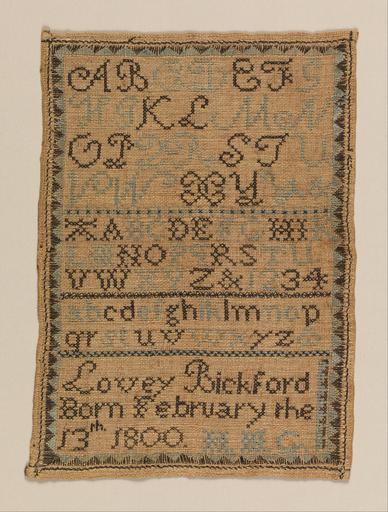 A B E F G
K L M N
O P Q R S T U
V W X Y Z &
A B C D E F G H I
N O P R S T U
V W Z & 1 2 3 4
a b c d e f g h i k l m n o p
q r s t u v w x y z
Lovey Bickford
Born February the
13th 1800. G